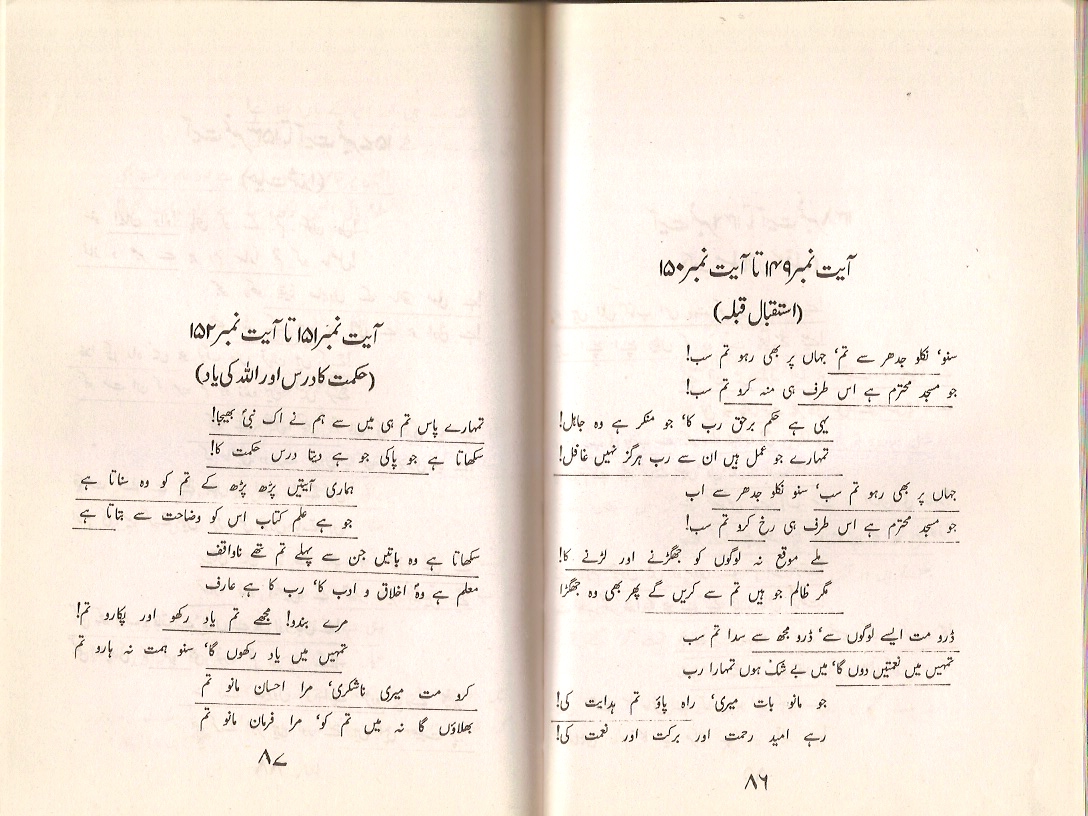 آیت نمبر ۱۴۹ تا آیت نمبر ۱۵۰
(استقبال قبلہ)
سنو‘ نکلو جدھر سے تم‘ جہاں پر بھی رہو تم سب!
جو مسجد محترم ہے اس طرف ہی منہ کرو تم سب!
یہی ہے حکم برحق رب کا‘ جو منکر ہے وہ جاہل!
تمہارے جو عمل ہیں ان سے رب ہرگز نہیں غافل!
جہاں پر بھی رہو تم سب‘ سنو نکلو جدھر سے اب
جو مسجد محترم ہے اس طرف ہی رخ کرو تم سب!
ملے موقع نہ لوگوں کو جھگڑنے اور لڑنے کا!
مگر ظالم جو ہیں تم سے کریں گے پھر بھی وہ جھگڑا
ڈرو مت ایسے لوگوں سے‘ ڈرو مجھ سے سدا تم سب
تمہیں میں نعمتیں دوں گا‘ میں بے شک ہوں تمہارا رب
جو مانو بات میری‘ راہ پاؤ تم ہدایت کی!
رہے امید رحمت اور برکت اور نعمت کی!
۸۶
آیت نمبر ۱۵۱ تا آیت نمبر ۱۵۲
(حکمت کا درس اور اللہ کی یاد)
تمہارے پاس تم ہی میں سے ہم نے اک نبیؐ بھیجا!
سکھاتا ہے جو پاکی جو ہے دیتا درس حکمت کا!
ہماری آیتیں پڑھ پڑھ کے تم کو وہ سناتا ہے
جو ہے علم کتاب اس کو وضاحت سے بتاتا ہے
سکھاتا ہے وہ باتیں جن سے پہلے تم تھے ناواقف
معلم ہے وہؐ اخلاق و ادب کا‘ رب کا ہے عارف
مرے بندو! مجھے تم یاد رکھو اور پکارو تم!
تمہیں میں یاد رکھوں گا‘ سنو ہمت نہ ہارو تم
کرو مت میری ناشکری‘ مرا احسان مانو تم
بھلاؤں گا نہ میں تم کو‘ مرا فرمان مانو تم
۸۷